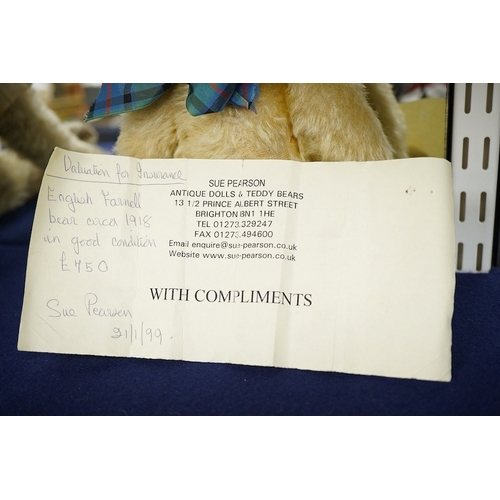 Valuation for Insurance
English Farnell
bear circa 1918
in good condition
£750
Sue Pearson
21/1/99.
SUE PEARSON
ANTIQUE DOLLS & TEDDY BEARS
13 1/2 PRINCE ALBERT STREET
BRIGHTON BN1 1HE
TEL 01273.329247
FAX 01273.494600
Email enquire@sue-pearson.co.uk
Website www.sue-pearson.co.uk
WITH COMPLIMENTS